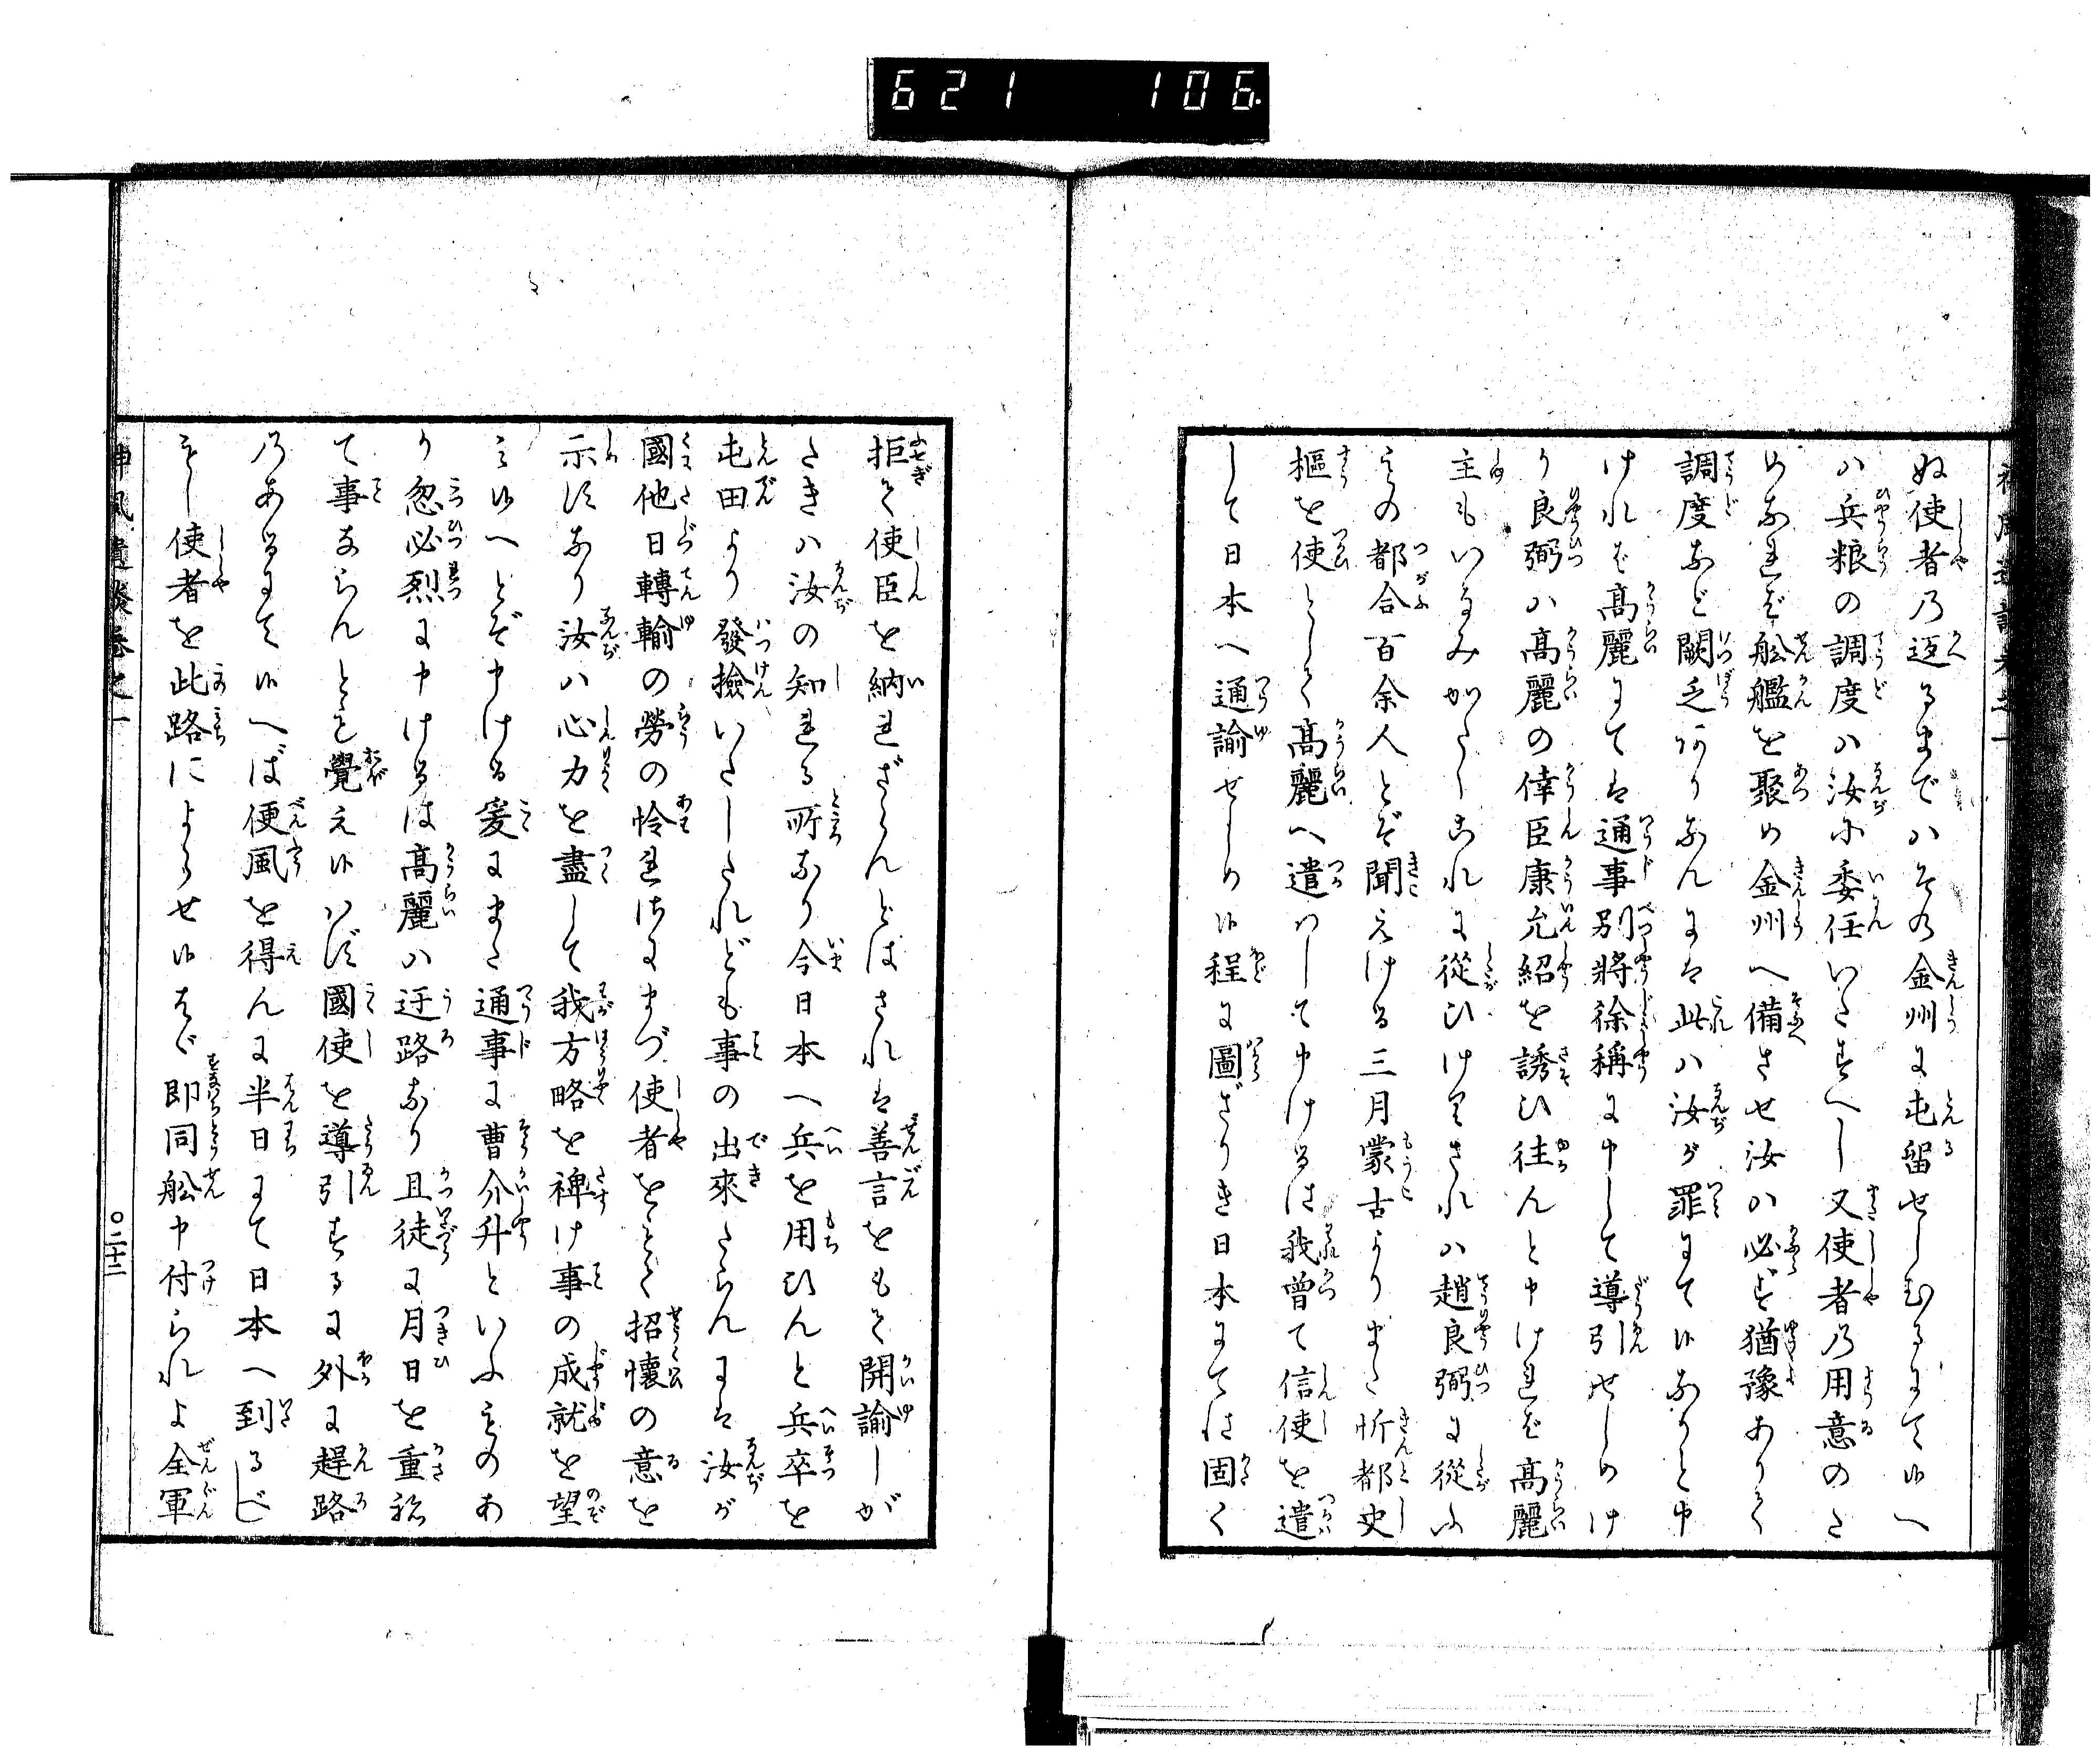 621 106
ぬ使者の返るまでハその金州に屯留せしむるにて候へ
ハ兵粮の調度ハ汝に委任いたすへし又使者の用意のた
めなれば舩艦を聚め金州へ備させ汝ハ必ず猶豫ありて
調度など闕乏ありなんには此ハ汝が罪にて候なりと申
けれは高麗にては通事別將徐稱に申して導引せしめけ
り良弼ハ高麗の倖臣康允紹を誘ひ往んと申けれど高麗
主もいなみがたくこれに從ひけりされハ趙良弼に從ふ
もの都合百余人とぞ聞えける三月蒙古よりまた忻都史
樞を使として高麗へ遣ハして申けるは我曾て信使を遣
して日本へ通諭せしめ候程に圖ざりき日本にては固く
拒て使臣を納れざらんとはされは善言をもて開諭しが
たきハ汝の知れる所なり今日本へ兵を用ひんと兵卒を
屯田より發撿いたしたれども事の出來たらんには汝が
國他日轉輸の勞の怜ればまづ使者をもて招懷の意を
示すなり汝ハ心力を盡して我方略を裨け事の成就を望
み候へとぞ申ける爰にまた通事に曹介升といふものあ
り忽必烈に申けるは高麗ハ迂路なり且徒に月日を重ね
て事ならんとも覺え候ハず國使を導引するに外に趕路
のあるにて候へば便風を得んに半日にて日本へ到るべ
もし使者を此路によらせ候はゞ即同舩申付られよ全軍
神風遺談卷之一
〇二十二